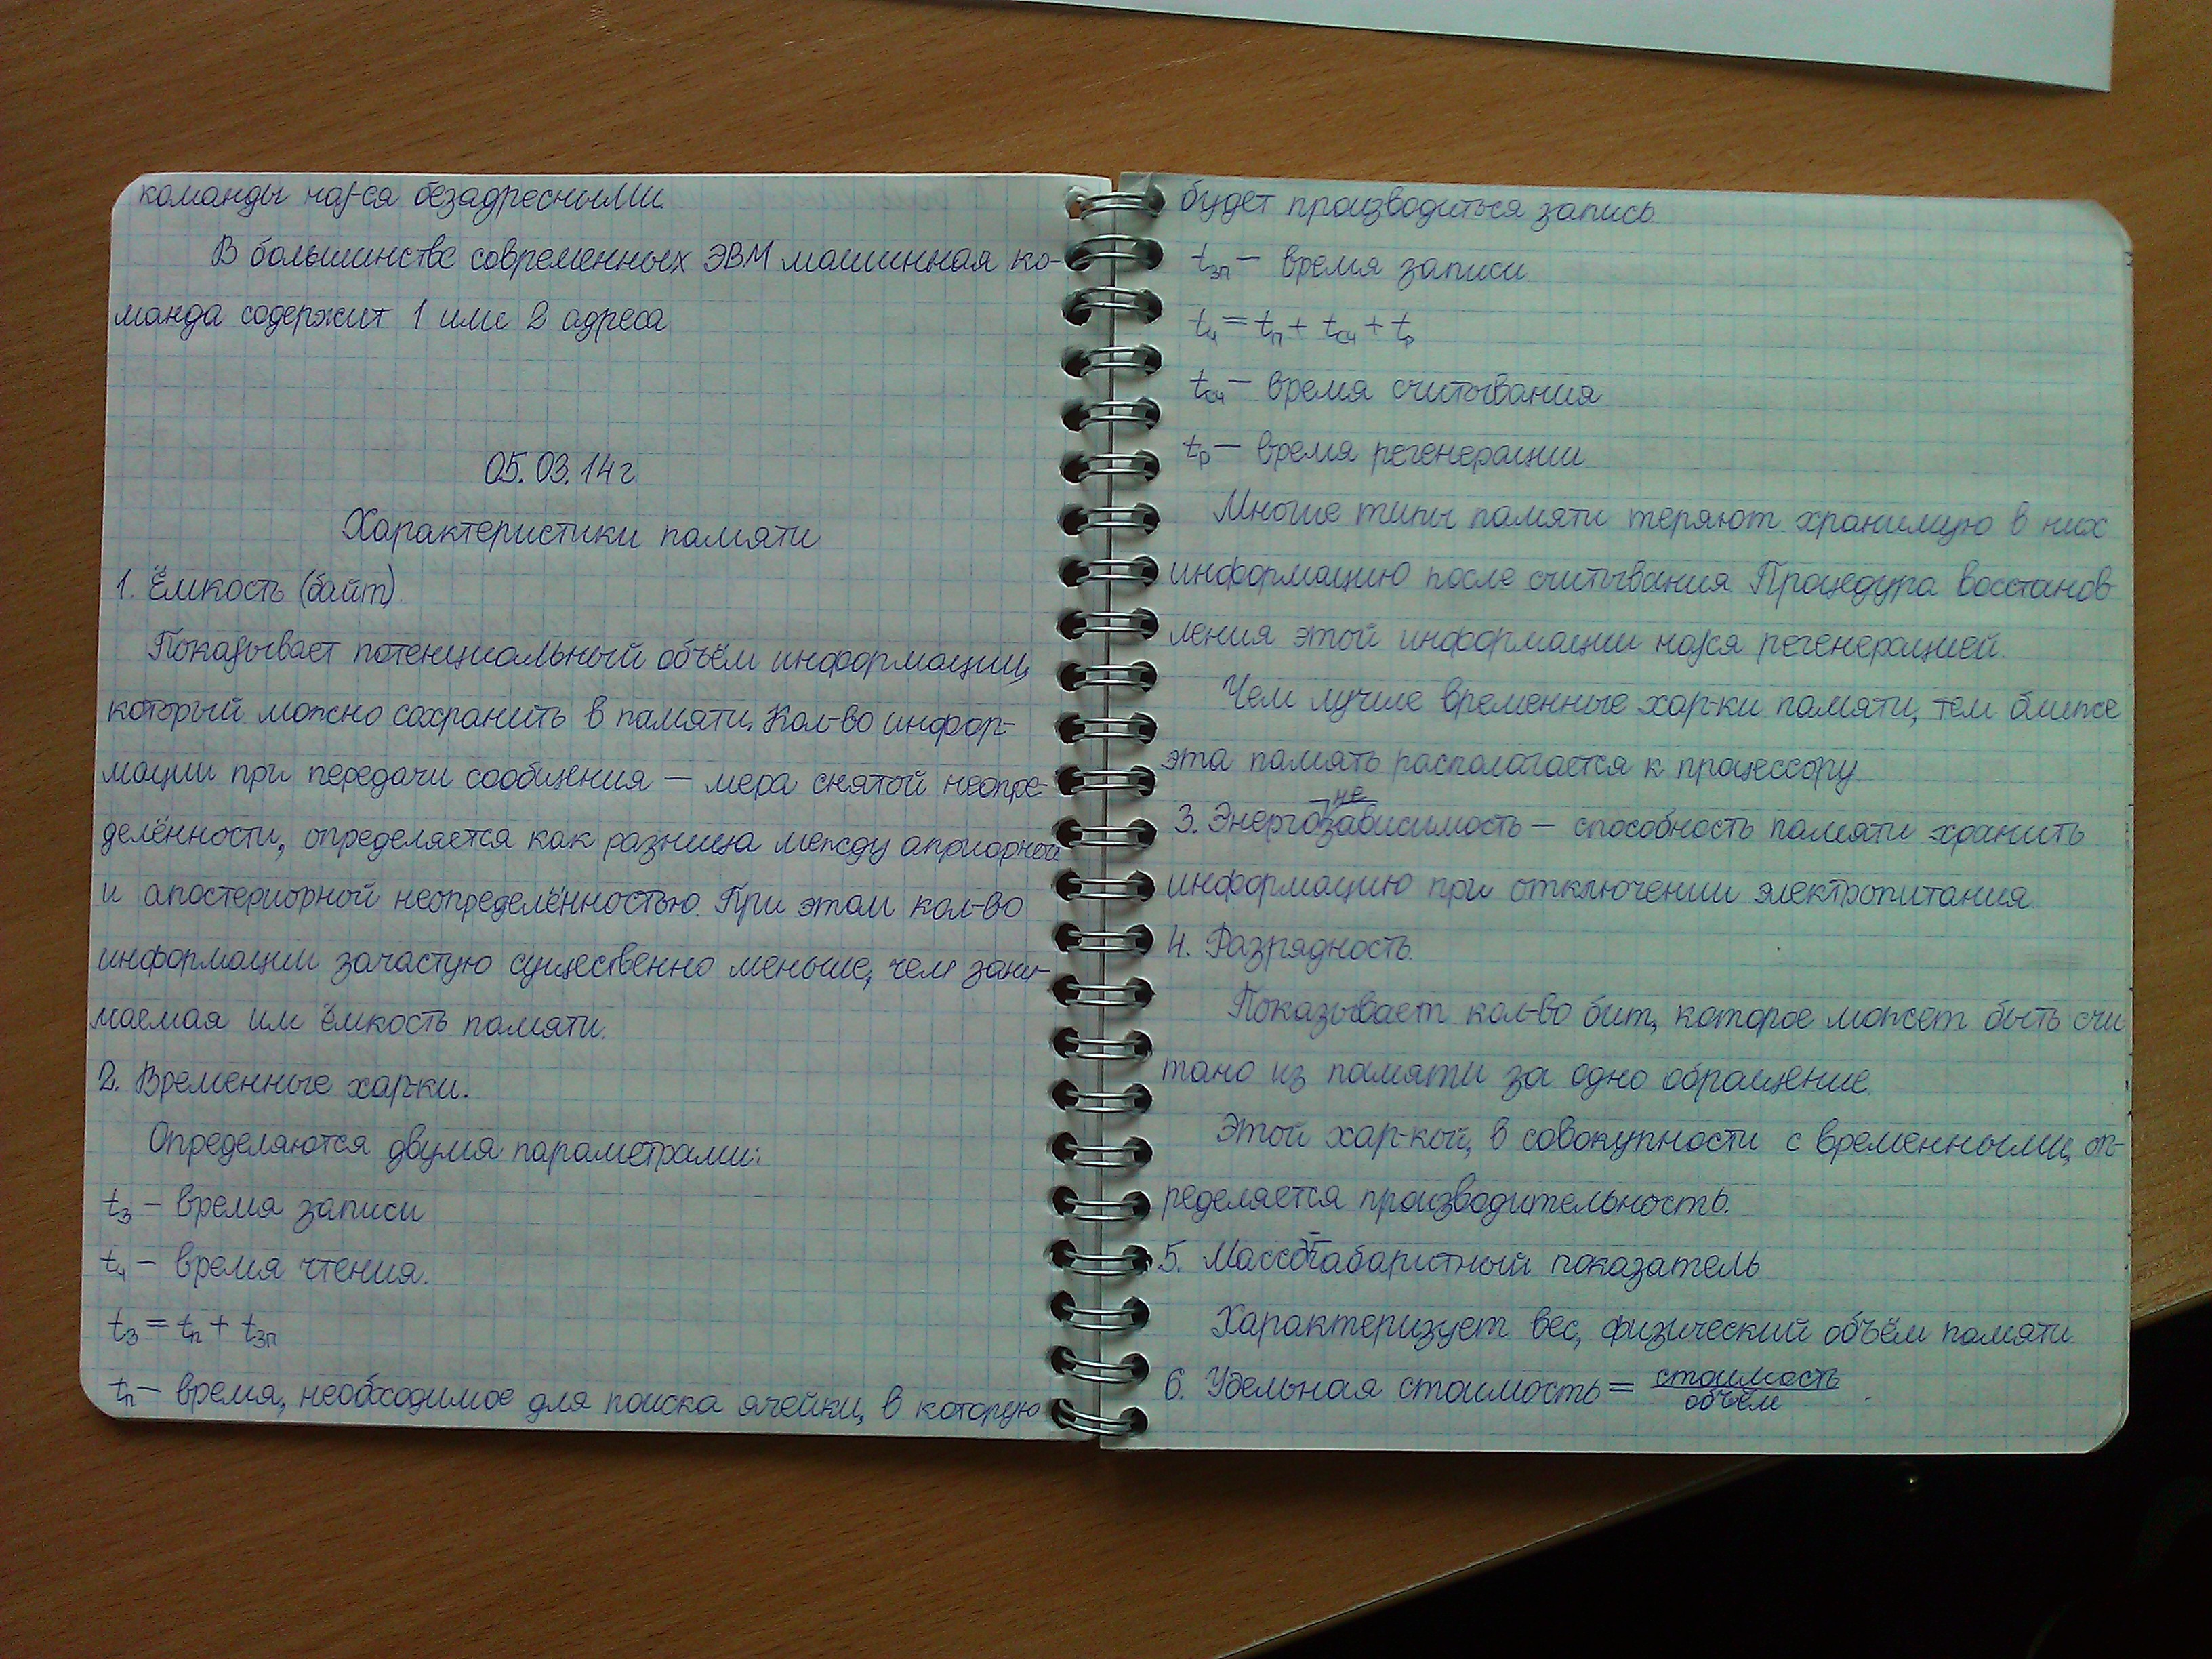 команды наз-ся безадресными.
В большинстве современных ЭВМ машинная ко-
манда содержит 1 или 2 адреса
05.03.14г.
Характеристики памяти
1. Ёмкость (байт).
Показывает потенциальный объём информации,
который можно сохранить в памяти. Кол-во инфор-
мации при передачи сообщения — мера снятой неопре-
делённости, определяется как разница между априорной
и апостериорной неопределённостью. При этом кол-во
информации зачастую существенно меньше, чем зани-
маемая им ёмкость памяти.
2. Временные хар-ки.
Определяются двумя параметрами:
tз — время записи
tч — время чтения.
tз = tп + tзп
tп — время, необходимое для поиска ячейки, в которую
будет производиться запись
tзп — время записи
tч = tп + tсч + tр
tсч — время считывания
tр — время регенерации
Многие типы памяти теряют хранимую в них
информацию после считывания. Процедура восстанов-
ления этой информации наз-ся регенерацией.
Чем лучше временные хар-ки памяти, тем ближе
эта память располагается к процессору
3. Энергонезависимость — способность памяти хранить
информацию при отключении электропитания.
4. Разрядность.
Показывает кол-во бит, которое может быть счи-
тано из памяти за одно обращение.
Этой хар-кой, в совокупности с временными, оп-
ределяется производительность.
5. Массогабаритный показатель
Характеризует вес, физический объём памяти
6. Удельная стоимость = стоимость / объём .